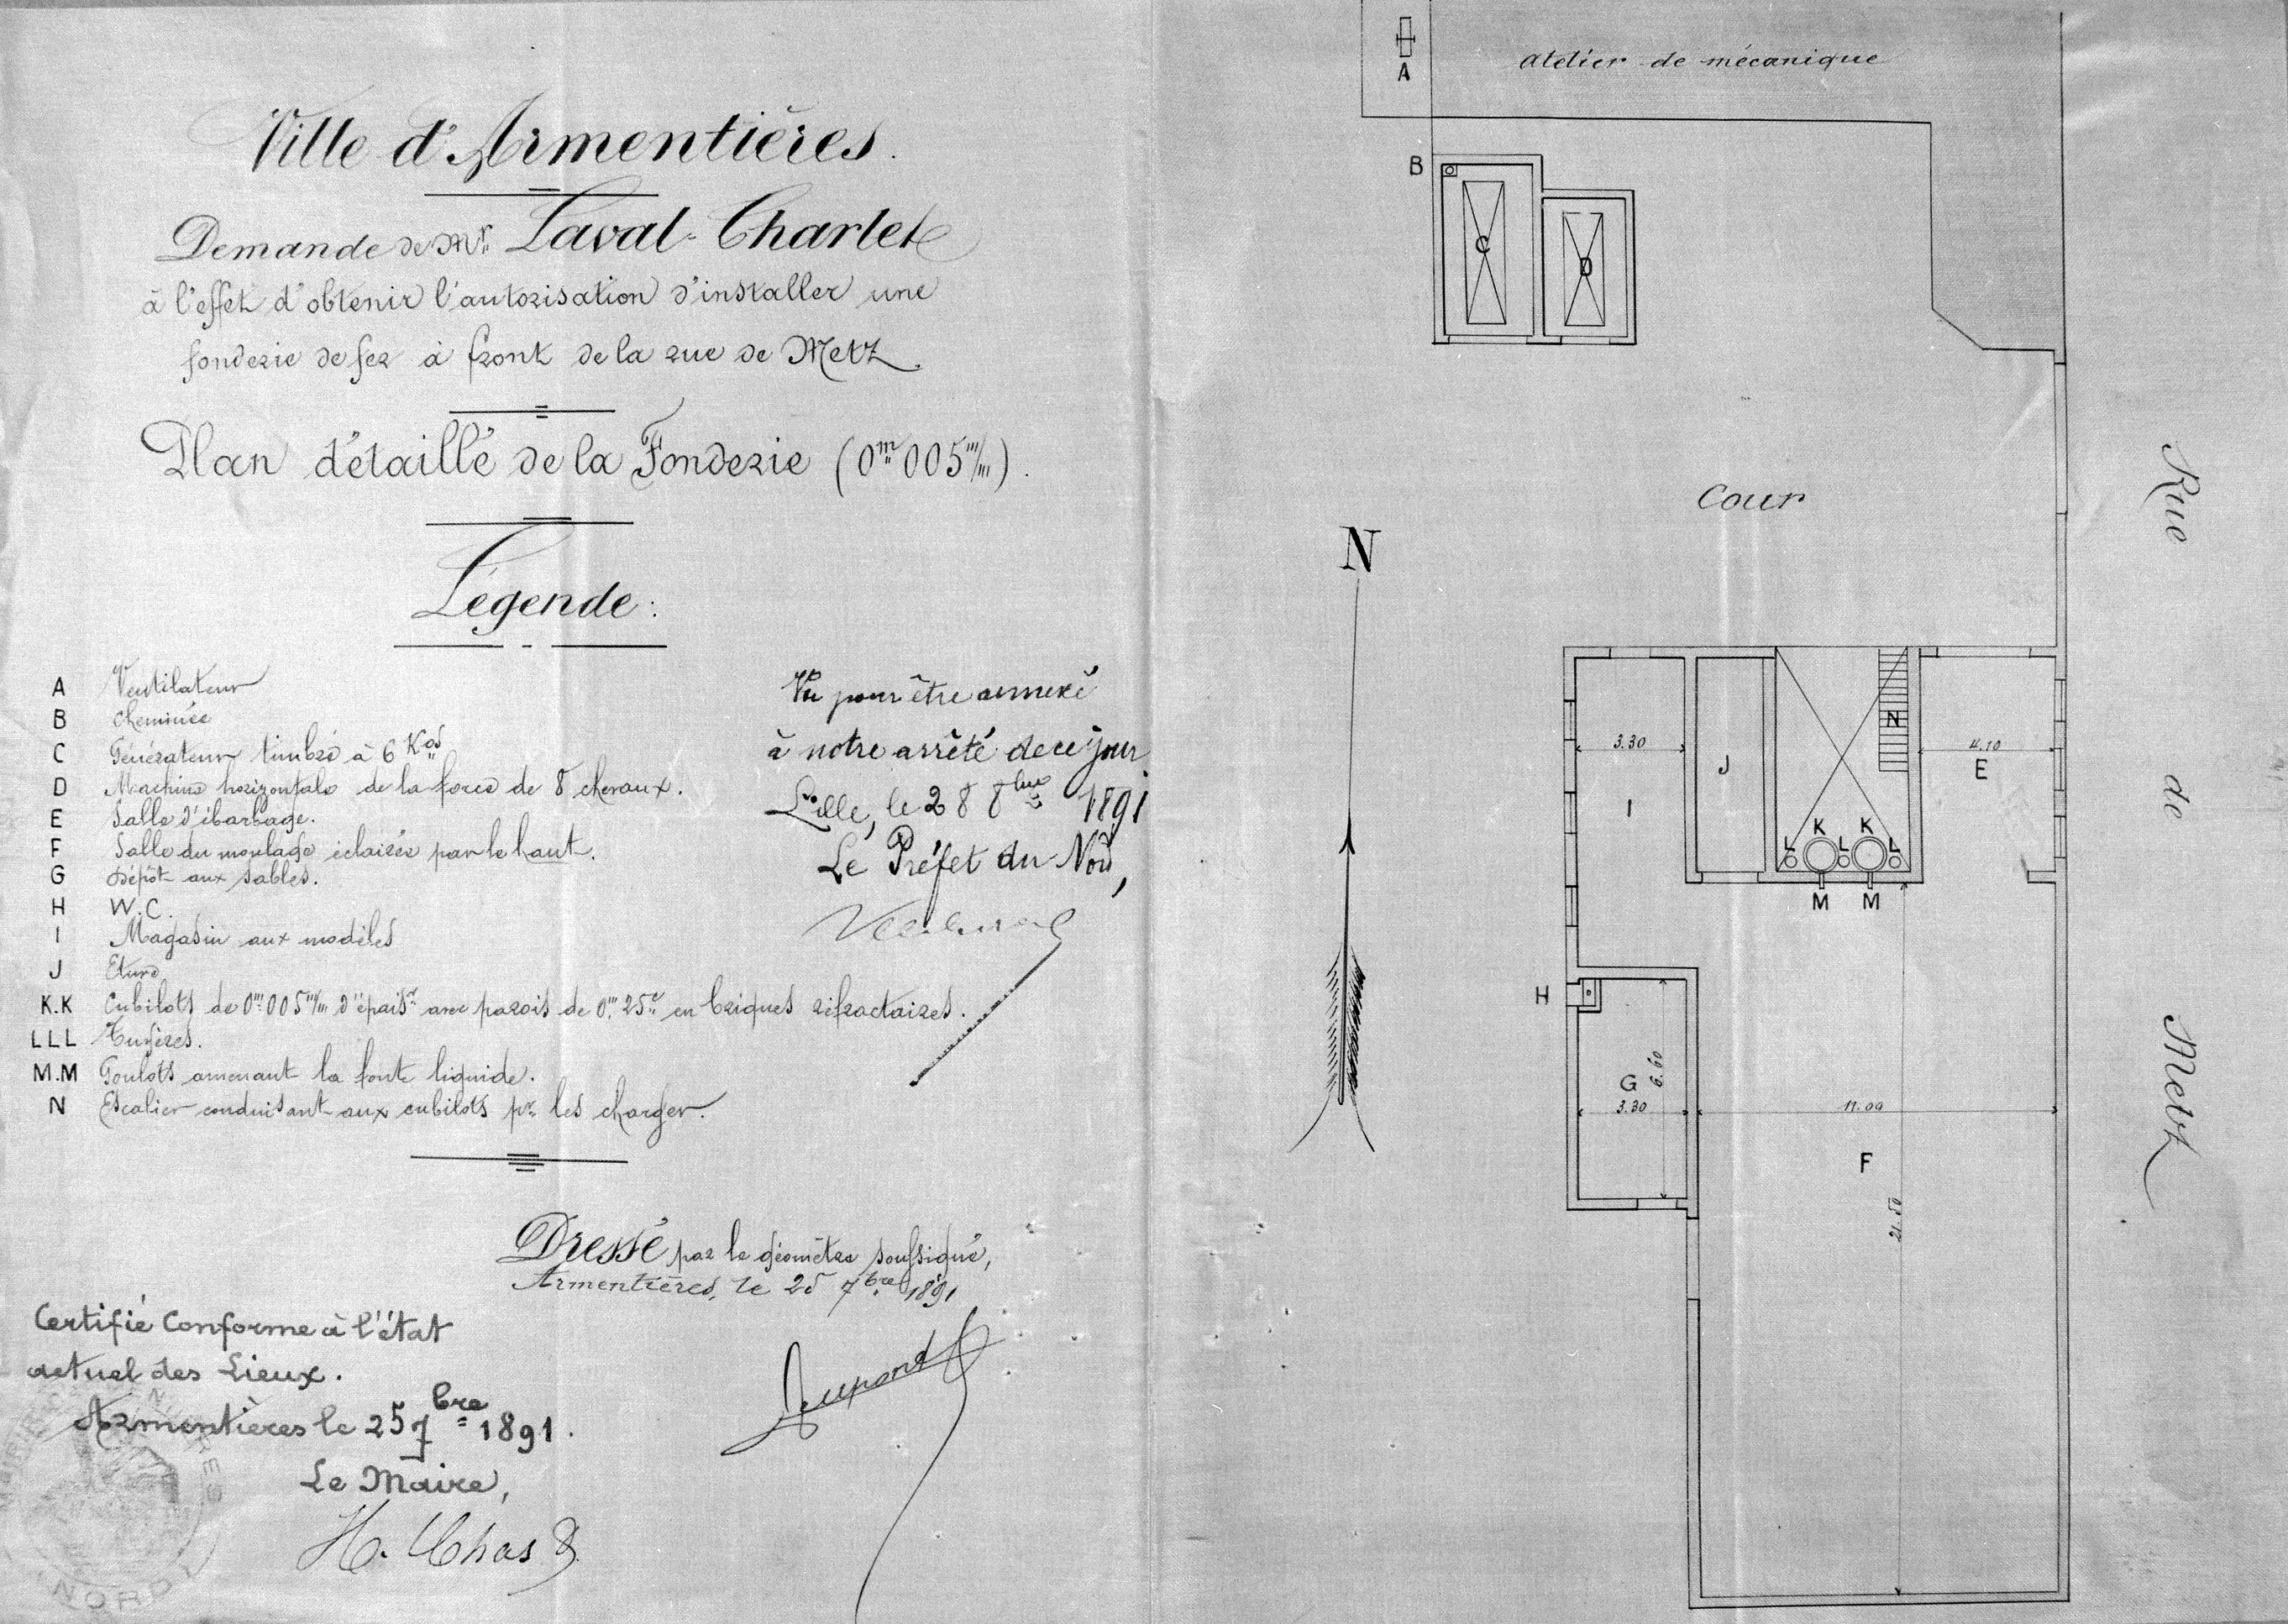 Ville d'Armentières.
Demande de Mr. Laval-Charlet
à l'effet d'obtenir l'autorisation d'installer une
fonderie de fer à front de la rue de Metz.
Plan détaillé de la Fonderie (0m005m/m).
Légende :
A Ventilateur
B Cheminée
C Générateur timbré à 6 Kos
D Machine horizontale de la force de 8 chevaux.
E Salle d'ébarbage.
F Salle du moulage éclairée par le haut.
G Dépôt aux sables.
H W.C.
I Magasin aux modèles
J Etuve
K.K Cubilots de 0m005m/m d'épaisr avec parois de 0m25c en briques réfractaires.
LLL Tuyères.
M.M Goulots amenant la fonte liquide.
N Escalier conduisant aux cubilots pr les charger.
Vu pour être annexé
à notre arrêté de ce jour
Lille, le 28 8bre 1891
Le Préfet du Nord,
Dressé par le géomètre soussigné,
Armentières, le 25 7bre 1891
Dupont
Certifié Conforme à l'état
actuel des Lieux.
Armentières le 25 7bre 1891.
Le Maire,
H. Chas
NORD
A
atelier de mécanique
B
C
D
Cour
N
Rue de Metz
3.30
J
N
4.10
E
I
K K
L L L
M M
H
G
6.60
3.30
11.00
F
21.50